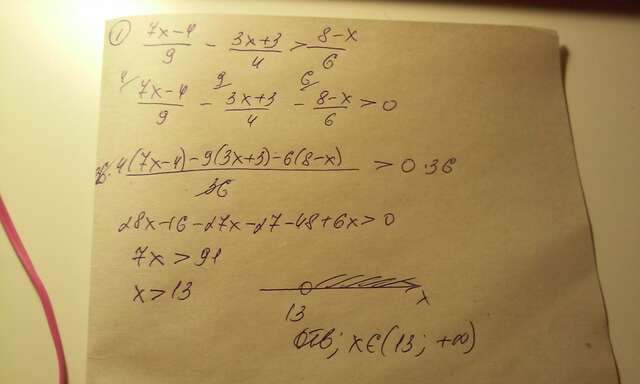 ① (7x-4)/9 - (3x+3)/4 > (8-x)/6
4/ 9/ 6/
(7x-4)/9 - (3x+3)/4 - (8-x)/6 > 0
36· (4(7x-4)-9(3x+3)-6(8-x))/36 > 0·36
28x-16-27x-27-48+6x>0
7x > 91
x>13
13 x
Отв; x∈(13; +∞)